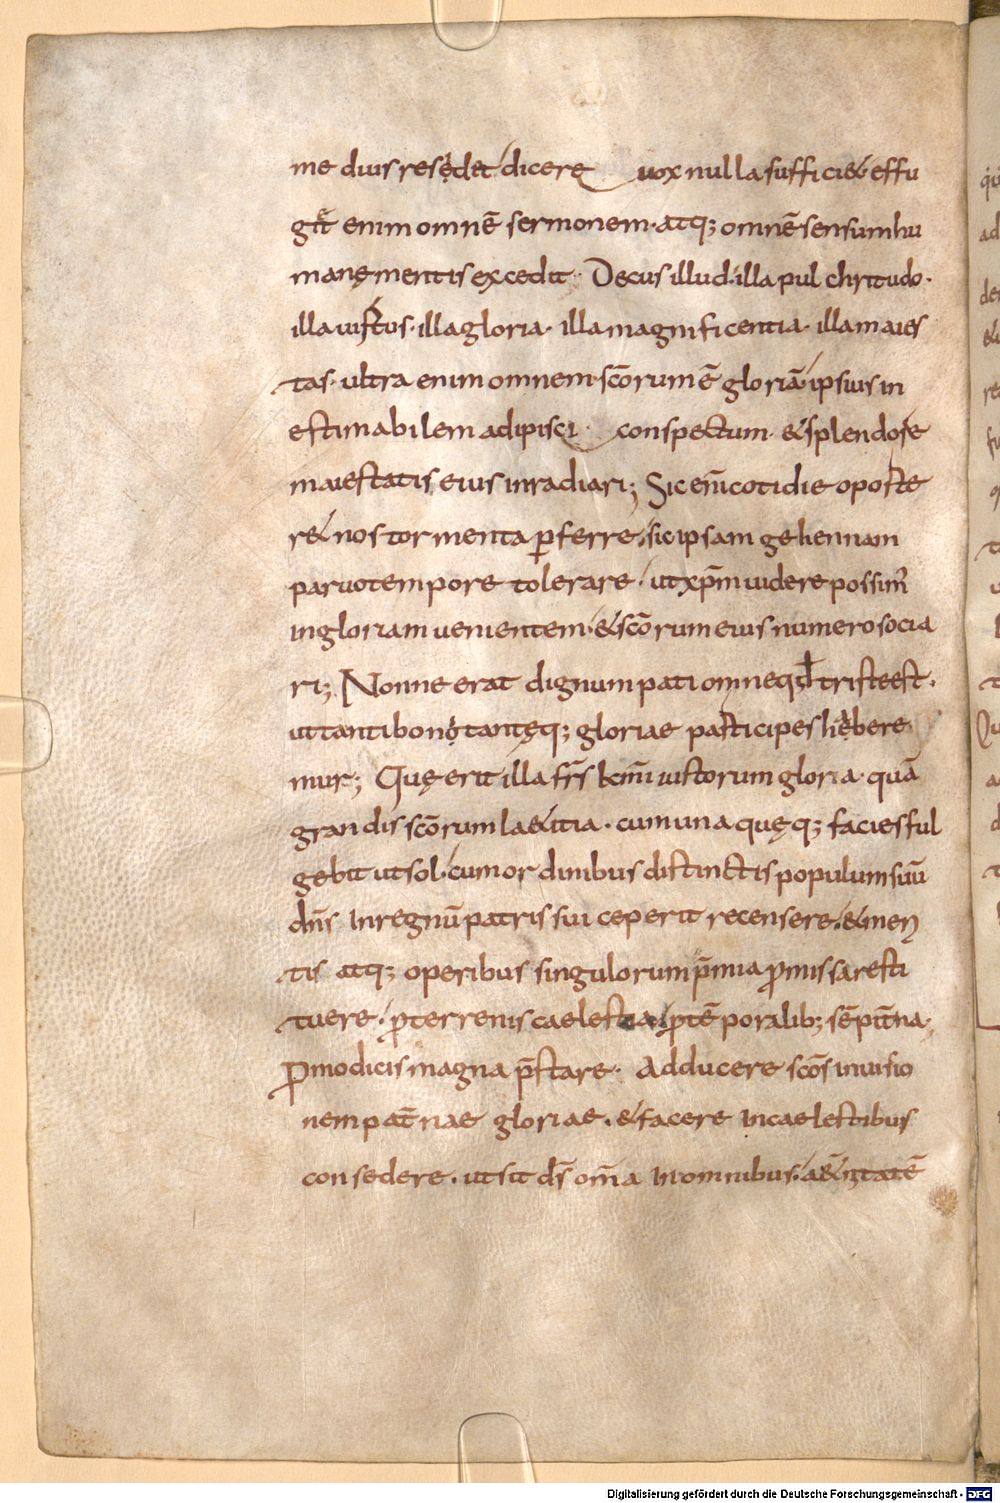 me diuis resędet dicere uox nulla sufficiet effu
git enim omnē sermonem· atq; omnē sensum hu
manę mentis excedit· Decus illud· illa pulchritudo·
illa uirtus· illa gloria· illa magnificentia· illa maies
tas· ultra enim omnem sc̄orum ē gloriā· ipsius in
estimabilem adipisci conspectum· & splendore
maiestatis eius inradiari; Sic eni̅ cotidie oporte
r& nos tormenta ꝑferre, sic ipsam gehennam
paruo tempore tolerare, ut xp̄m uidere possim̓
in gloriam uenientem· & sc̄orum eius numero socia
ri; Nonne erat dignum pati omne qđ triste est·
ut tanti bonị tantęq; gloriae participes habere
mur; Quę erit illa fr̄s km̄i iustorum gloria· quā
grandis sc̄orum la&itia· cum una quęq; facies ful
gebit ut sol· cum ordinibus distinctis populum suū
dn̄s in regnū patris sui ceperit recensere, & meri
tis atq; operibus singulorum p̄mia ꝓmissa resti
tuere· ꝓ terrenis caelestia ꝓ tē poralib; sēpit̄na·
ꝓ modicis magna p̄stare· Adducere sc̄os in uisio
nem pat̄nae gloriae· & facere in caelestibus
consedere· ut sit ds̄ om̄a in omnibus· a&̄nitatē
Digitalisierung gefördert durch die Deutsche Forschungsgemeinschaft - DFG